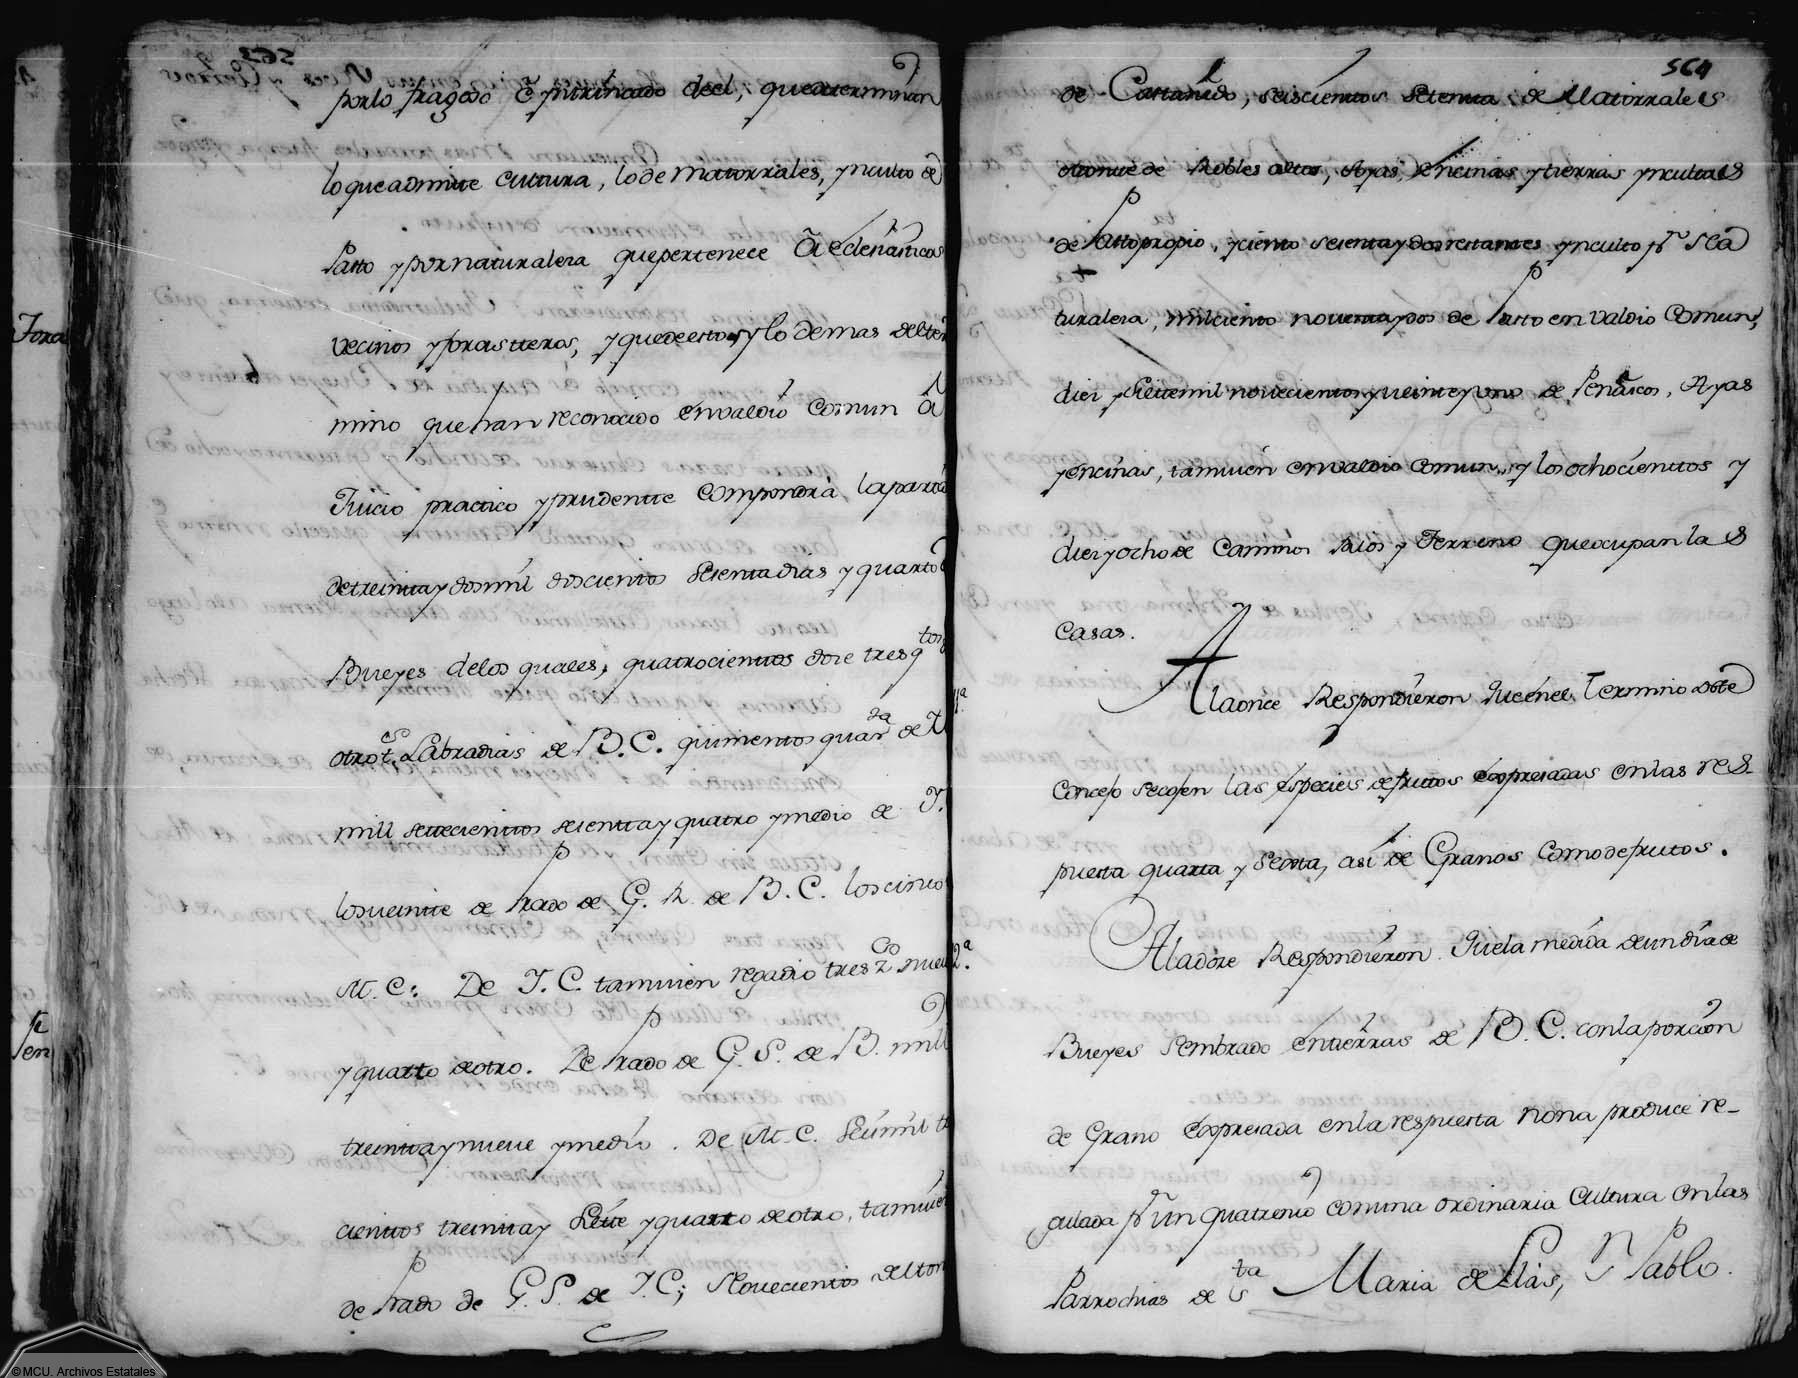 563
por lo fragoso é yntrincado del, que determinan
lo que admite cultura, lo de matorrales, ynculto de
Pasto y por naturaleza que pertenece á eclesiasticos
vecinos y forasteros, y que de esto, y lo demas del ter
mino que han reconocido en valdio comun á
Juicio practico y prudente compondrá, la parro
de treinta y dos mil doscientos sesenta dias y quarto
Bueyes delos quales, quatrocientos doze tres q.tos
otro t. Labradias de B. C. quinientos quar.ta de
mill settecientos sesenta y quatro y medio de J.
los veinte de Prado de G. R. de B. C. los cinco
M. C: De J. C. tamvien regadio tres nuev
y quarto de otro. De Prado de G. S. de B. mill
treinta y nueve y medio. De M. C. Seis mil
cientos treinta y siete y quarto de otro, tamvien
de Prado de G. S. de J. C; Novecientos
564
de Castañedo, seiscientos setenta, de Matorrales
Monte de Robles altos, Ayas, Encinas y tierras yncultas
de Pasto propio, y ciento sesenta y dos restantes ynculto p.r Na
turaleza, mil ciento noventa y dos de Pasto en valdio comun,
diez y siete mil novecientos y veinte y uno de Peñascos, Ayas
y encinas, tamvien en valdio comun, y los ochocientos y
diez y ocho de Caminos Rios y Terreno que ocupan las
Casas.
11.ª
A la once Respondieron que en el Termino de este
Concejo se cojen las especies de fruttos expresadas en las res-
puesta quarta y Sexta, así de Granos como de frutos.
12.ª
A la doze Respondieron que la medida de un dia de
Bueyes sembrado en tierras de B. C. con la porcion
de Grano expresada en la respuesta nona produce re-
gulada p.r un quatrenio con una ordinaria cultura en las
Parrochias de S.ta Maria de Llas, S.n Pablo.
©MCU. Archivos Estatales